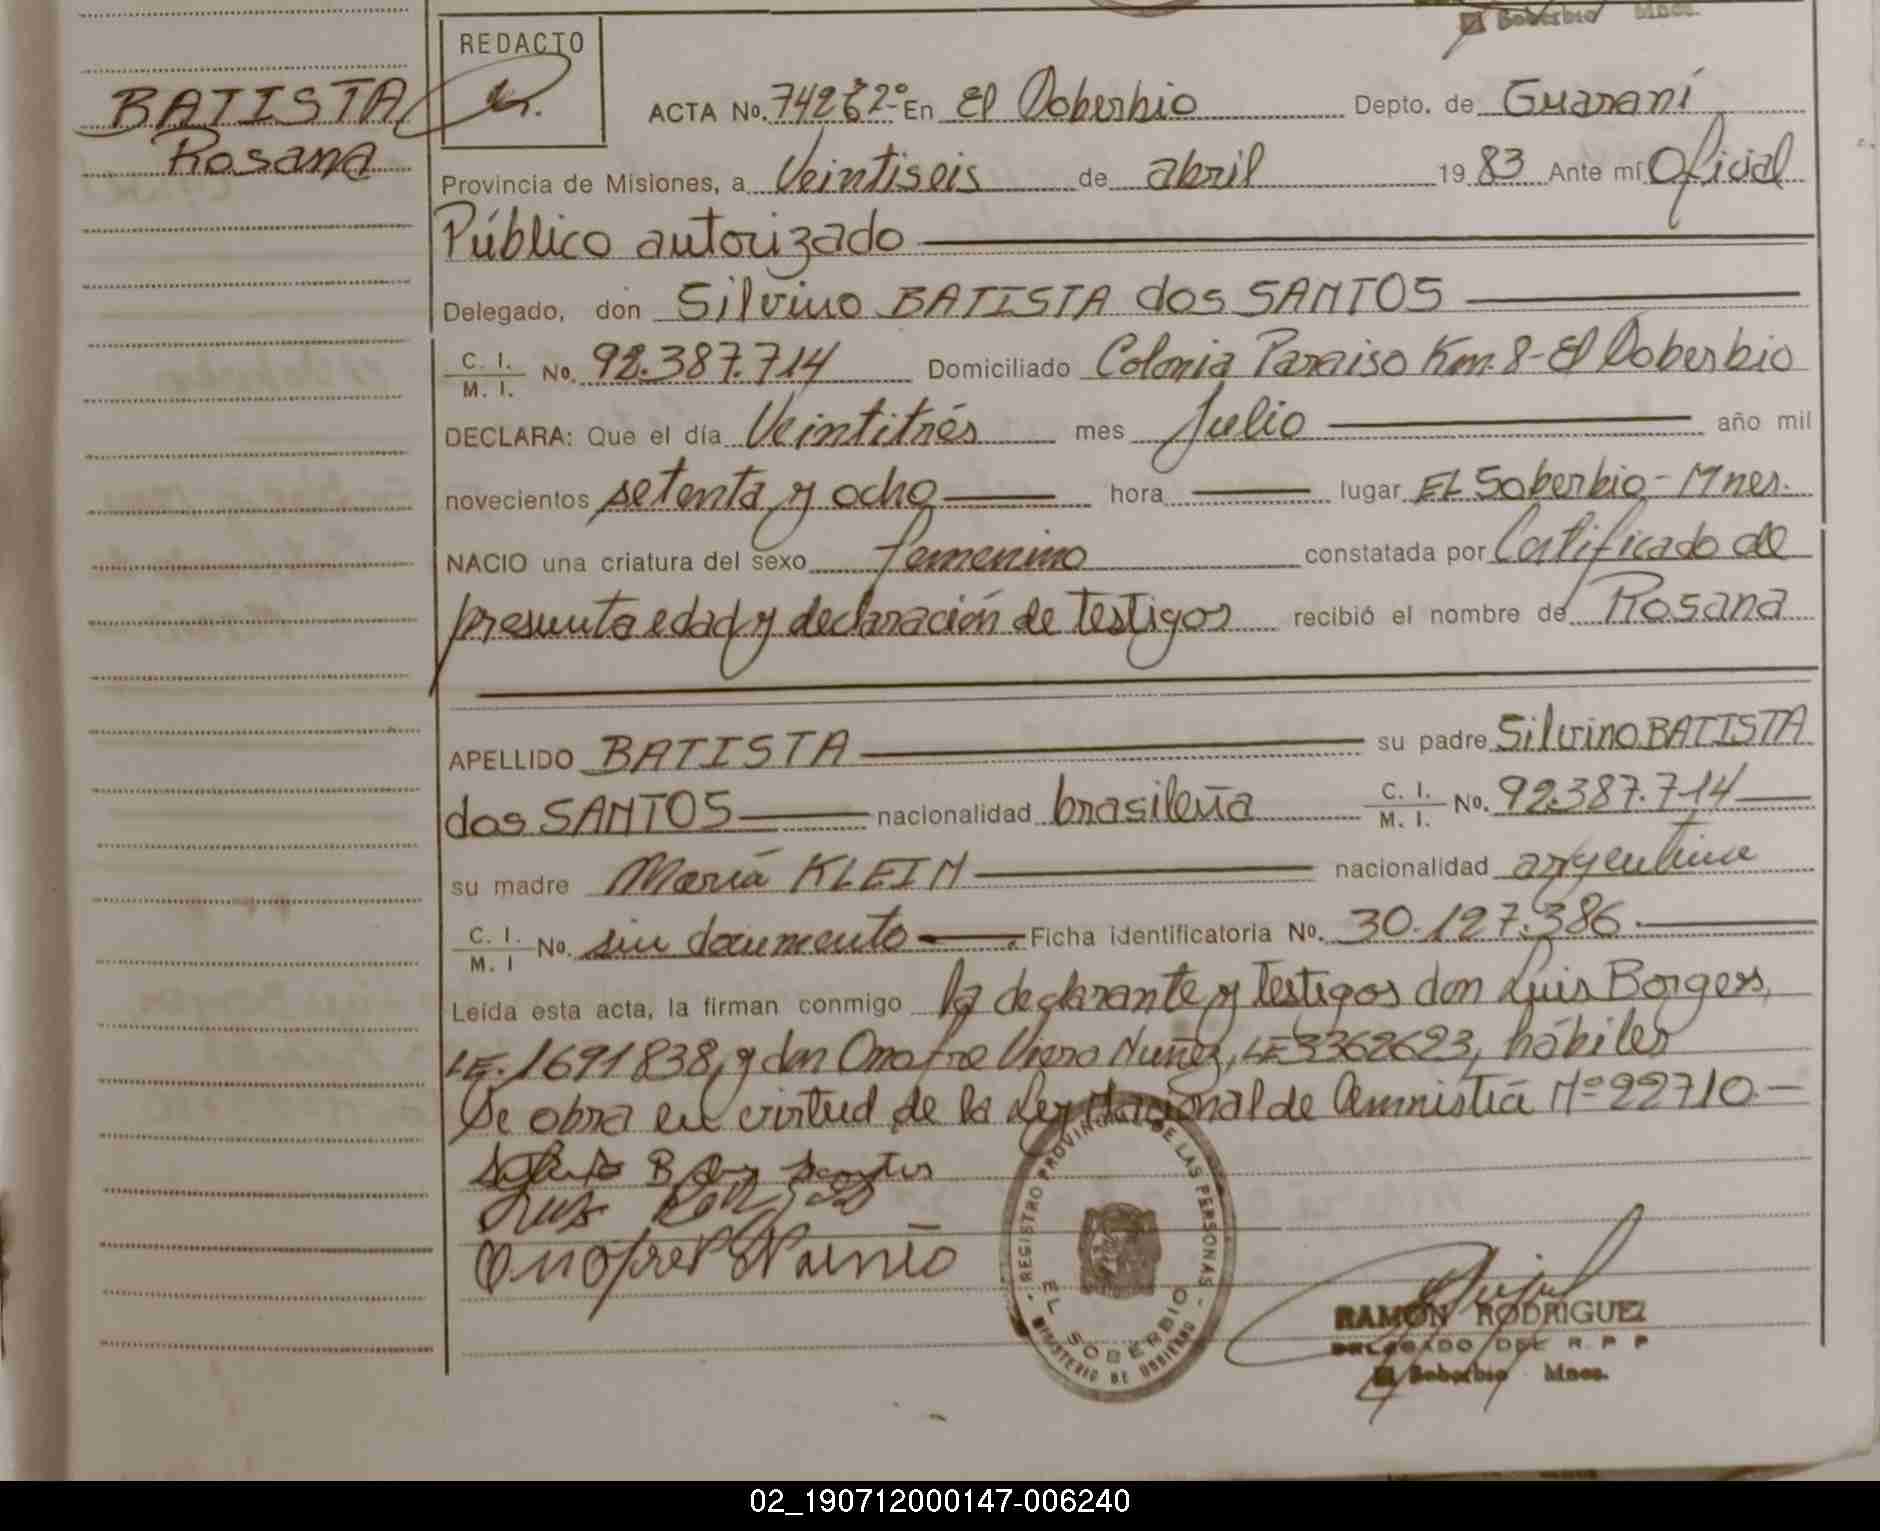 El Soberbio Mnes.
REDACTO
BATISTA
Rosana
ACTA No. 742 En El Soberbio Depto. de Guaraní
Provincia de Misiones, a Veintiseis de abril 1983 Ante mí Oficial
Público autorizado
Delegado, don Silvino BATISTA dos SANTOS
C. I. / M. I. No. 92.387.714 Domiciliado Colonia Paraiso Km. 8 - El Soberbio
DECLARA: Que el día Veintitrés mes Julio año mil
novecientos setenta y ocho hora lugar EL Soberbio - Mnes.
NACIO una criatura del sexo femenino constatada por Certificado de
presunta edad y declaración de testigos recibió el nombre de Rosana
APELLIDO BATISTA su padre Silvino BATISTA
dos SANTOS nacionalidad brasileña C. I. / M. I. No. 92.387.714
su madre María KLEIN nacionalidad argentina
C. I. / M. I No. sin documento Ficha identificatoria No. 30.127.386
Leída esta acta, la firman conmigo la declarante y testigos don Luis Borges,
LE. 1691838, y don Onofre Viera Nuñez, LE 3362623, hábiles
Se obra en virtud de la Ley Nacional de Amnistía Nº 22710.-
REGISTRO PROVINCIAL DE LAS PERSONAS
EL SOBERBIO
MINISTERIO DE GOBIERNO
RAMON RODRIGUEZ
DELEGADO DEL R. P P
El Soberbio Mnes.
02_190712000147-006240